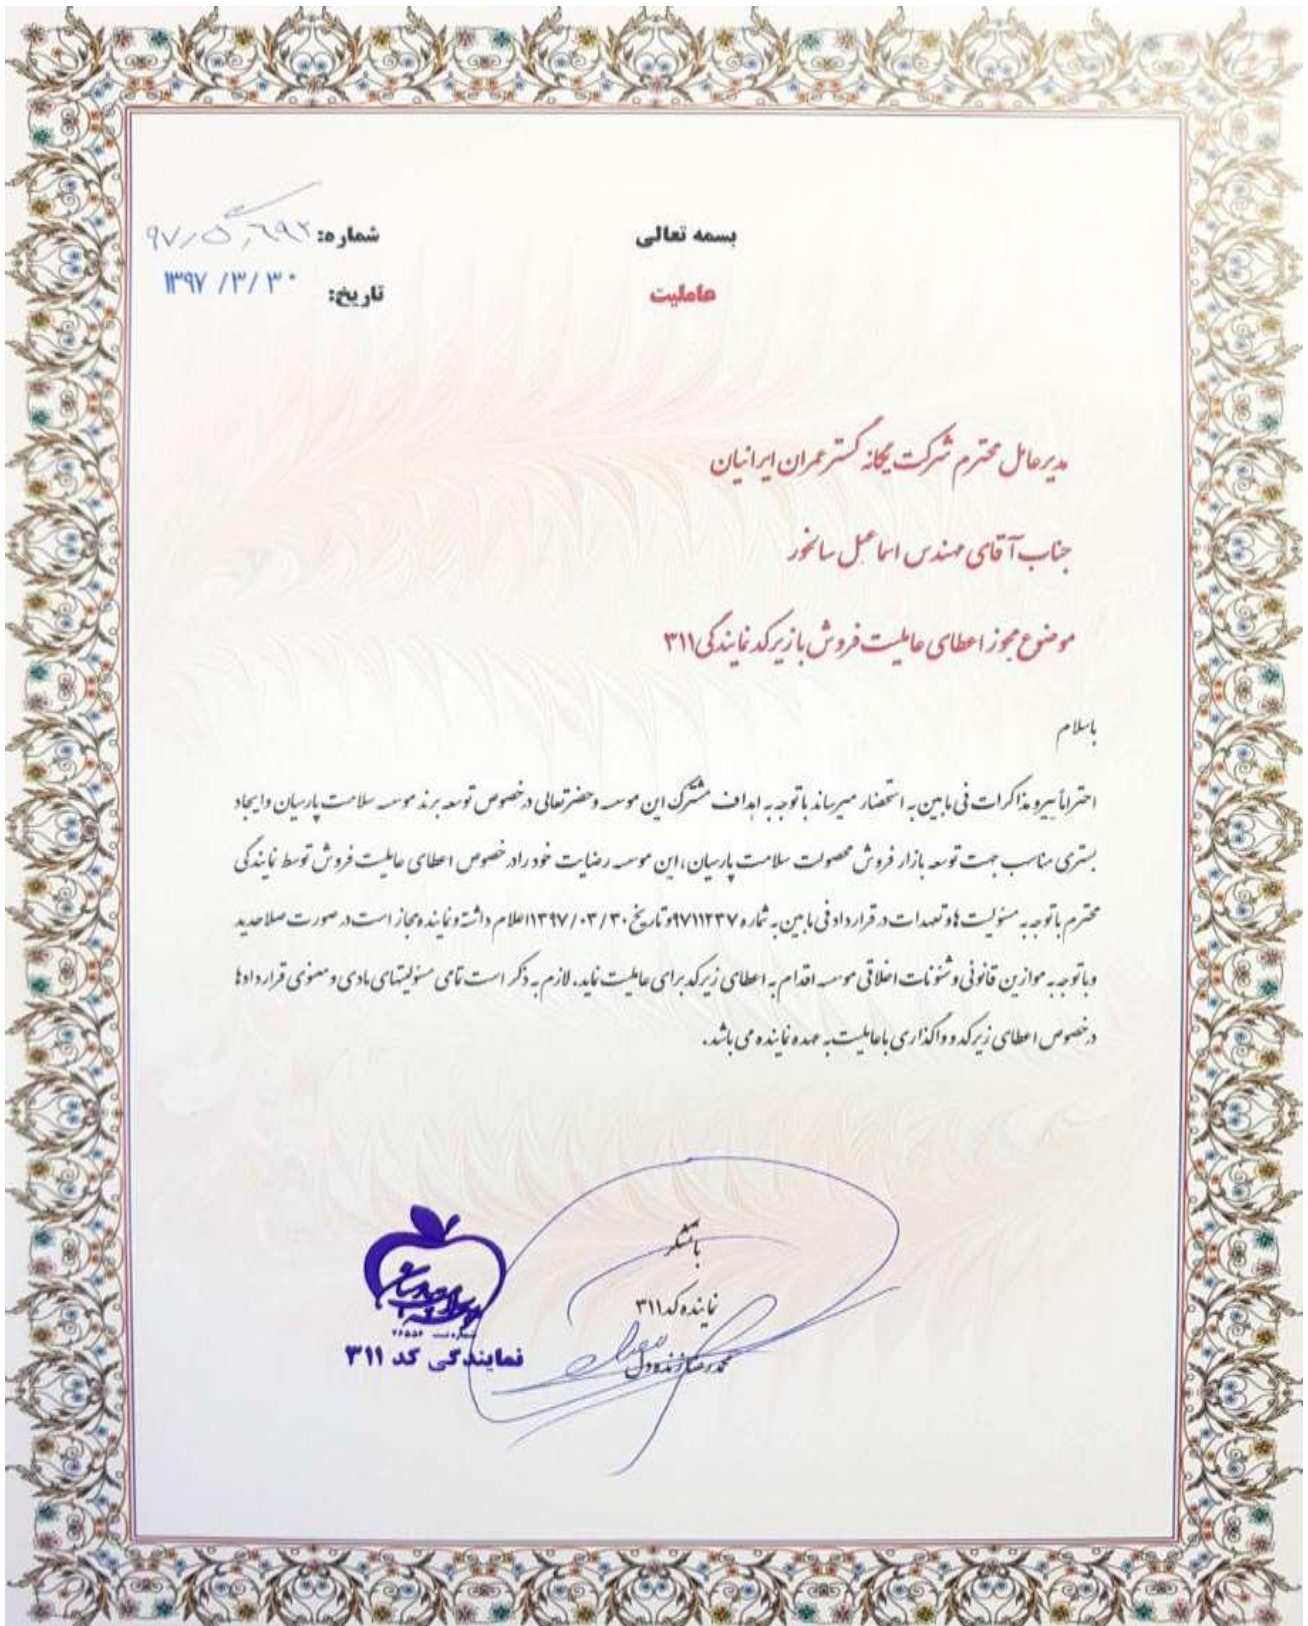 بسمه تعالی
شماره:
عاملیت
تاریخ: ۱۳۹۷/۳/۳۰
مدیرعامل محترم شرکت یگانه گستر عمران ایرانیان
جناب آقای مهندس اسماعیل سالخور
موضوع مجوز اعطای عاملیت فروش با زیرکد نمایندگی ۳۱۱
باسلام
احتراماً پیرو مذاکرات فی مابین به استحضار میرساند باتوجه به اهداف مشترک این موسسه وحضرتعالی درخصوص توسعه برند موسسه سلامت پارسیان وایجاد
بستری مناسب جهت توسعه بازار فروش محصولت سلامت پارسیان، این موسسه رضایت خود رادر خصوص اعطای عاملیت فروش توسط نمایندگی
محترم باتوجه به مسئولیت هاو تعهدات در قرارداد فی مابین به شماره ۹۷۱۱۲۳۷و تاریخ ۱۳۹۷/۰۳/۳۰اعلام داشته و نماینده مجاز است در صورت صلاحدید
وباتوجه به موازین قانونی و شئونات اخلاقی موسسه اقدام به اعطای زیرکد برای عاملیت نماید. لازم به ذکر است تمامی مسئولیتهای مادی و معنوی قراردادها
درخصوص اعطای زیرکد و واگذاری باعاملیت به عهده نماینده می باشد.
باتشکر
نماینده کد ۳۱۱
محمدرضا زنده دل
شماره ثبت ۲۶۵۵۶
نمایندگی کد ۳۱۱